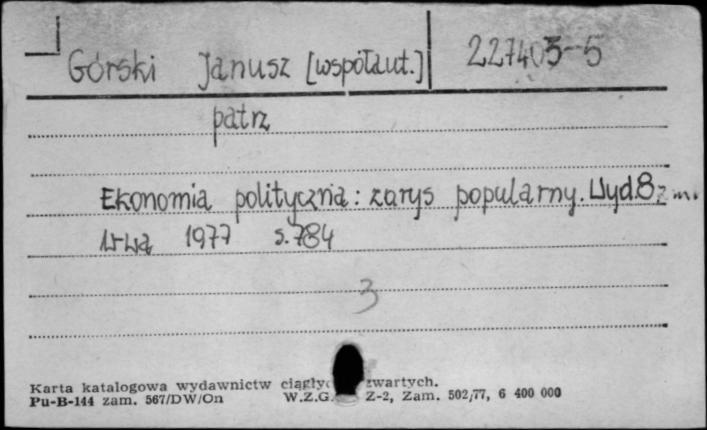 Górski Janusz [współaut.] 227405-5
patrz
Ekonomia polityczna: zarys popularny. Wyd.8 z m.
W-wa 1977 s. 784
3
Karta katalogowa wydawnictw zwartych.
Pu-B-144 zam. 567/DW/On W.Z.G. Z-2, Zam. 502/77, 6 400 000